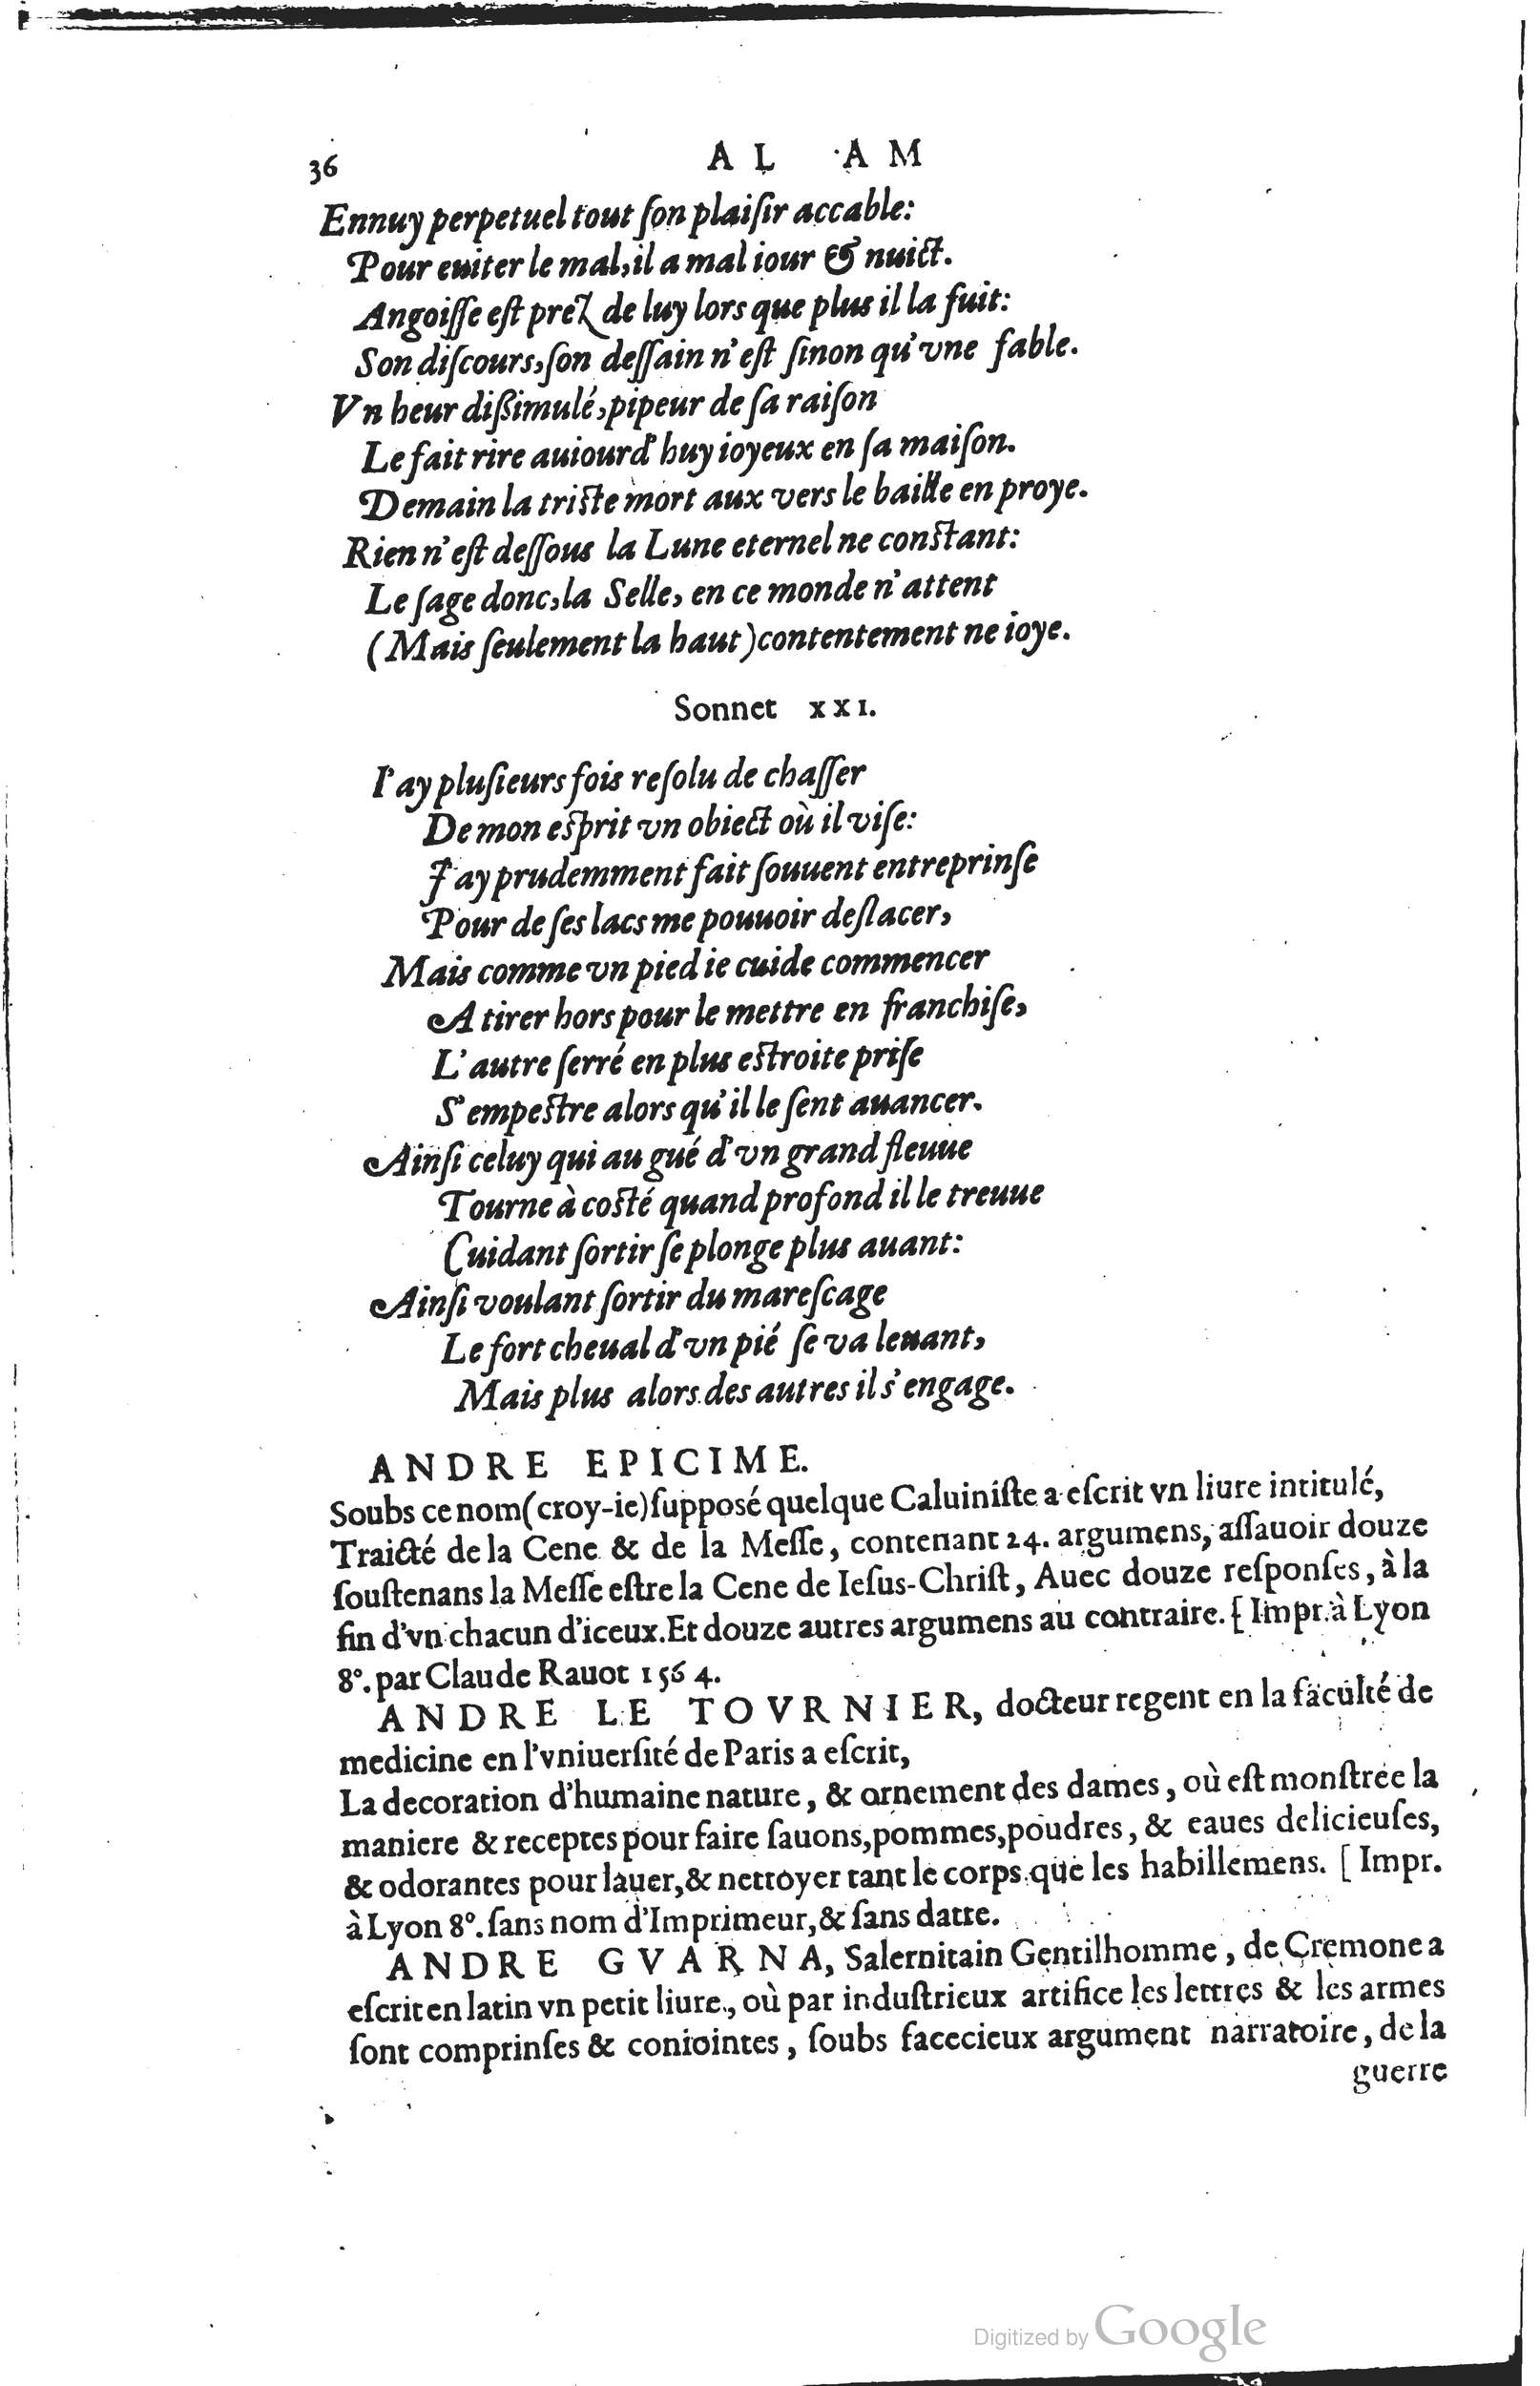 36
AL AM
Ennuy perpetuel tout ſon plaiſir accable:
Pour euiter le mal, il a mal iour & nuict.
Angoiſſe eſt prez de luy lors que plus il la fuit:
Son diſcours, ſon deſſain n'eſt ſinon qu'vne fable.
Vn heur dißimulé, pipeur de ſa raiſon
Le fait rire auiourd'huy ioyeux en ſa maiſon.
Demain la triſte mort aux vers le baille en proye.
Rien n'eſt deſſous la Lune eternel ne conſtant:
Le ſage donc, la Selle, en ce monde n'attent
(Mais ſeulement la haut) contentement ne ioye.
Sonnet XXI.
I'ay pluſieurs fois reſolu de chaſſer
De mon eſprit vn obiect où il viſe:
J'ay prudemment fait ſouuent entreprinſe
Pour de ſes lacs me pouuoir deſlacer,
Mais comme vn pied ie cuide commencer
A tirer hors pour le mettre en franchiſe,
L'autre ſerré en plus eſtroite priſe
S'empeſtre alors qu'il le ſent auancer.
Ainſi celuy qui au gué d'vn grand fleuue
Tourne à coſté quand profond il le treuue
Cuidant ſortir ſe plonge plus auant:
Ainſi voulant ſortir du mareſcage
Le fort cheual d'vn pié ſe va leuant,
Mais plus alors des autres il s'engage.
ANDRE EPICIME.
Soubs ce nom (croy-ie) ſuppoſé quelque Caluiniſte a eſcrit vn liure intitulé,
Traicté de la Cene & de la Meſſe, contenant 24. argumens, aſſauoir douze
ſouſtenans la Meſſe eſtre la Cene de Ieſus-Chriſt, Auec douze reſponſes, à la
fin d'vn chacun d'iceux. Et douze autres argumens au contraire. [Impr. à Lyon
8°. par Claude Rauot 1564.
ANDRE LE TOVRNIER, docteur regent en la faculté de
medicine en l'vniuerſité de Paris a eſcrit,
La decoration d'humaine nature, & ornement des dames, où eſt monſtrée la
maniere & receptes pour faire ſauons, pommes, poudres, & eaues delicieuſes,
& odorantes pour lauer, & nettoyer tant le corps que les habillemens. [Impr.
à Lyon 8°. ſans nom d'Imprimeur, & ſans datte.
ANDRE GVARNA, Salernitain Gentilhomme, de Cremone a
eſcrit en latin vn petit liure, où par induſtrieux artifice les lettres & les armes
ſont comprinſes & coniointes, ſoubs facecieux argument narratoire, de la
guerre
Digitized by Google